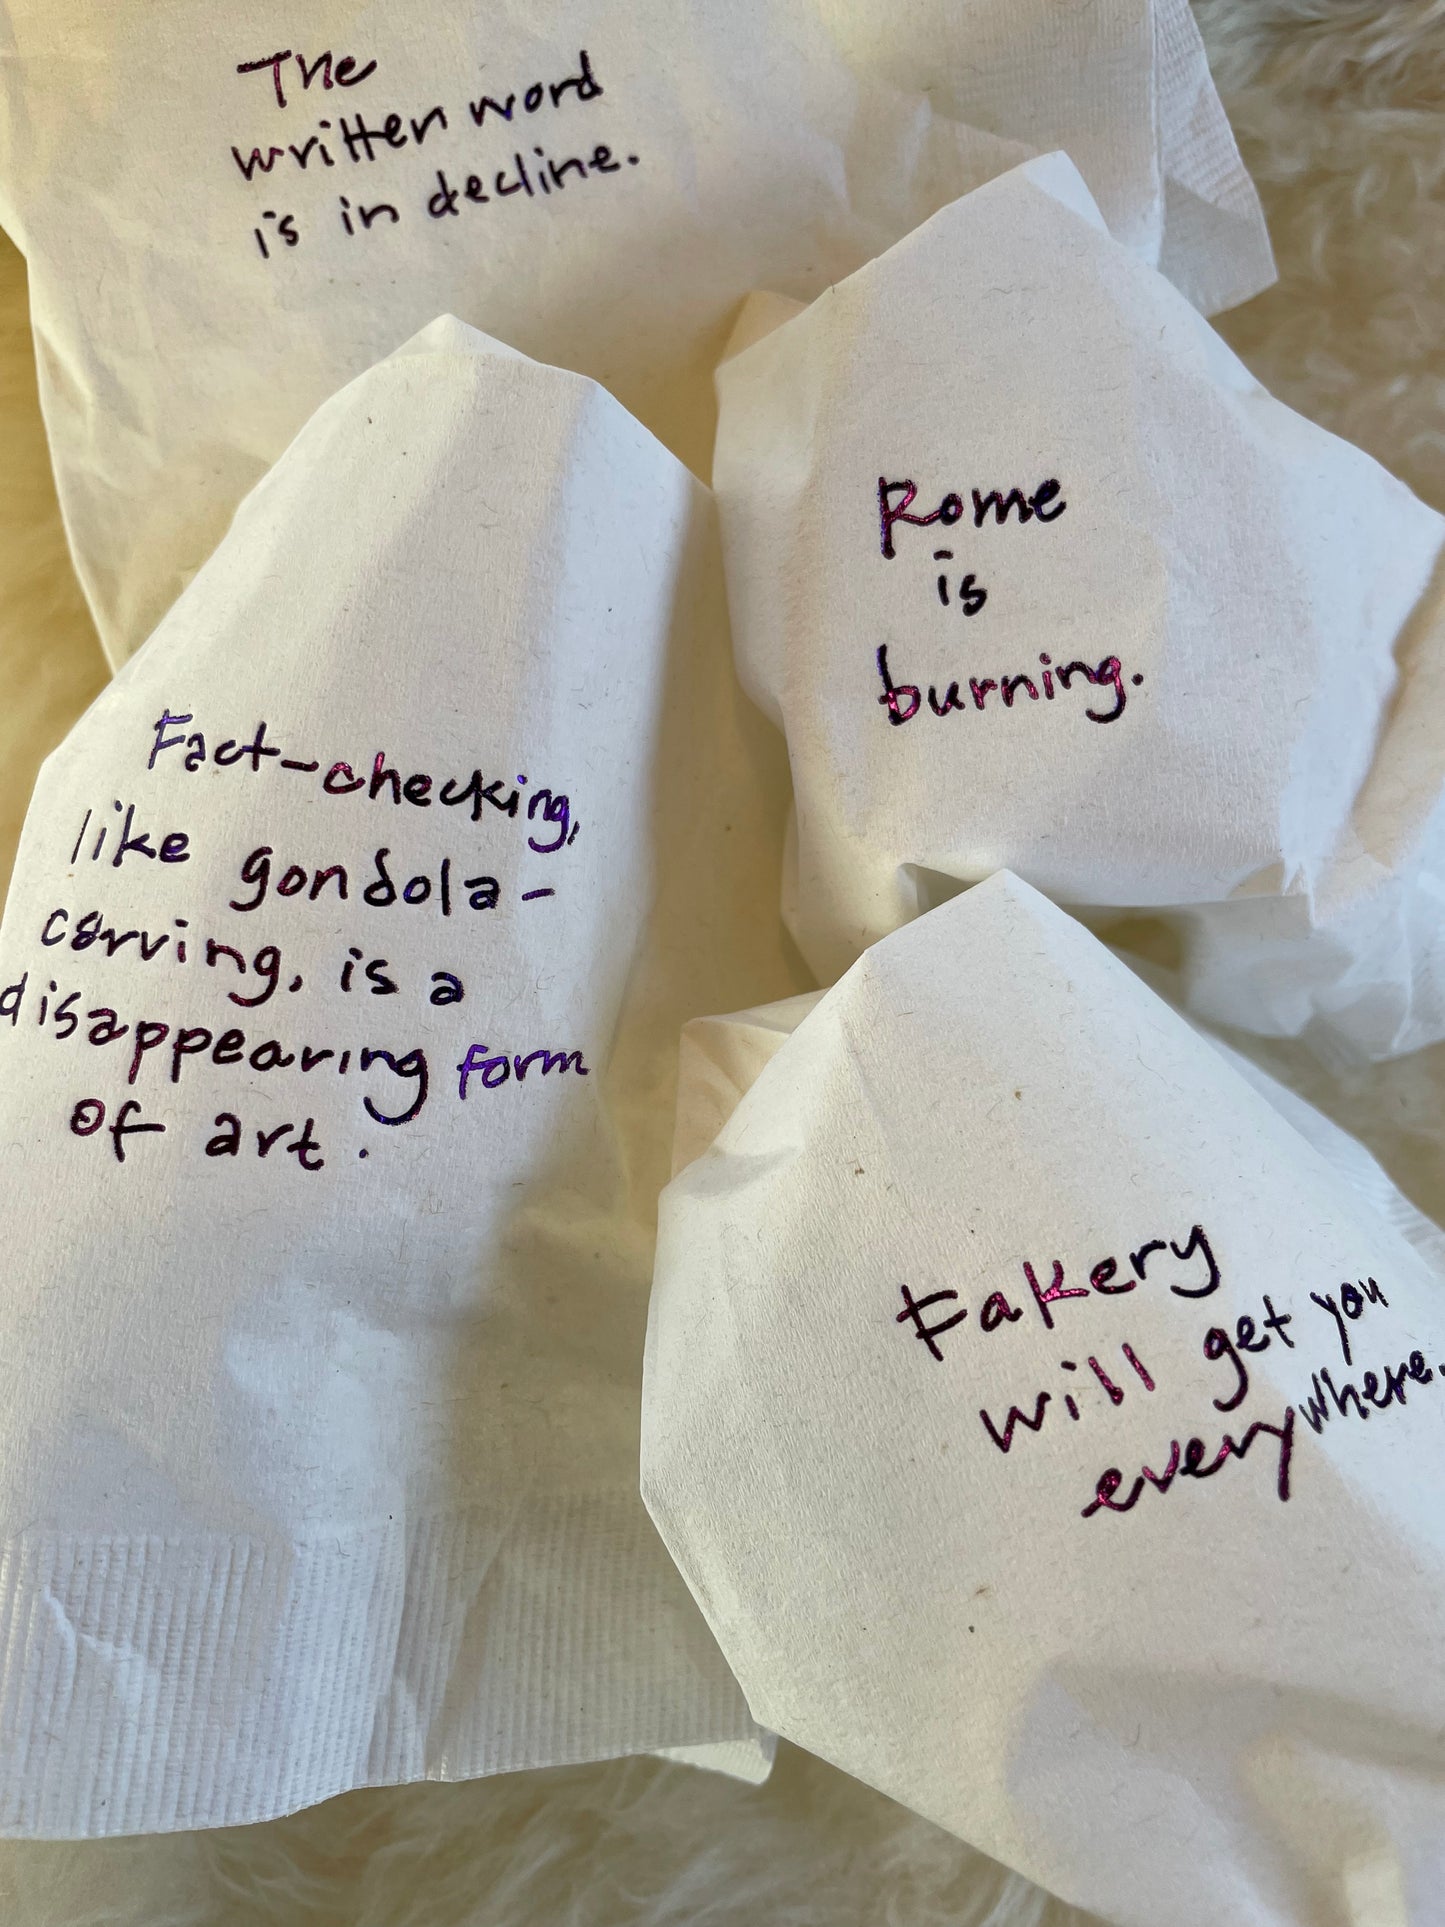 The
written word
is in decline.
Rome
is
burning.
Fact-checking,
like gondola-
carving, is a
disappearing form
of art.
Fakery
will get you
everywhere.